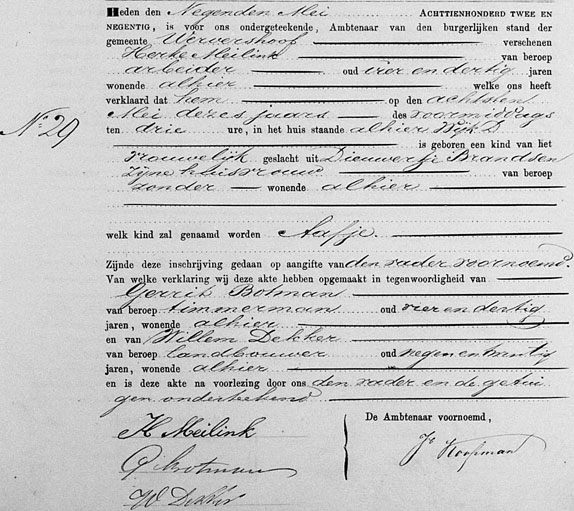 Heden den Negenden Mei ACHTTIENHONDERD TWEE EN
NEGENTIG, is voor ons ondergeteekende, Ambtenaar van den burgerlijken stand der
gemeente Wervershoof verschenen
Herke Meilink van beroep
arbeider oud vier en dertig jaren
wonende alhier welke ons heeft
verklaard dat hem op den achtsten
Mei dezes jaars des voormiddags
ten drie ure, in het huis staande alhier Wijk D
is geboren een kind van het
vrouwelijk geslacht uit Dieuwertje Brandsen
zijne huisvrouw van beroep
zonder wonende alhier
No 29
welk kind zal genaamd worden Aafje.
Zijnde deze inschrijving gedaan op aangifte van den vader voornoemd.
Van welke verklaring wij deze akte hebben opgemaakt in tegenwoordigheid van
Gerrit Botman
van beroep timmerman oud vier en dertig
jaren, wonende alhier
en van Willem Dekker
van beroep landbouwer oud negen en twintig
jaren, wonende alhier
en is deze akte na voorlezing door ons den vader en de getui
gen onderteekend
De Ambtenaar voornoemd,
H Meilink
G Botman
W Dekker
Js Koopman